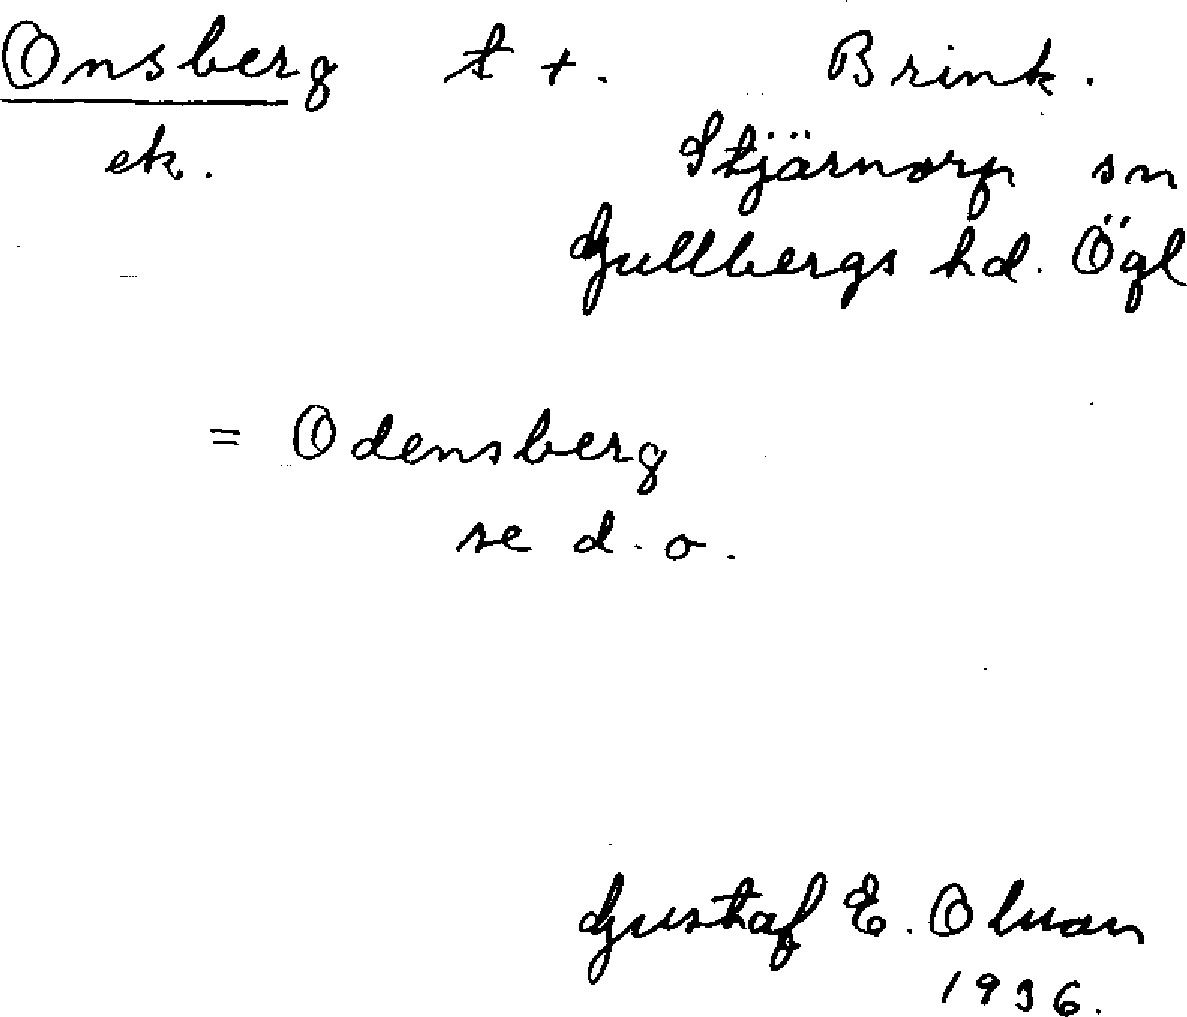 Onsberg t +. Brink.
ek. Stjärnorp sn
Gullbergs hd. Ögl
= Odensberg
se d.o.
Gustaf E. Olsson
1936.